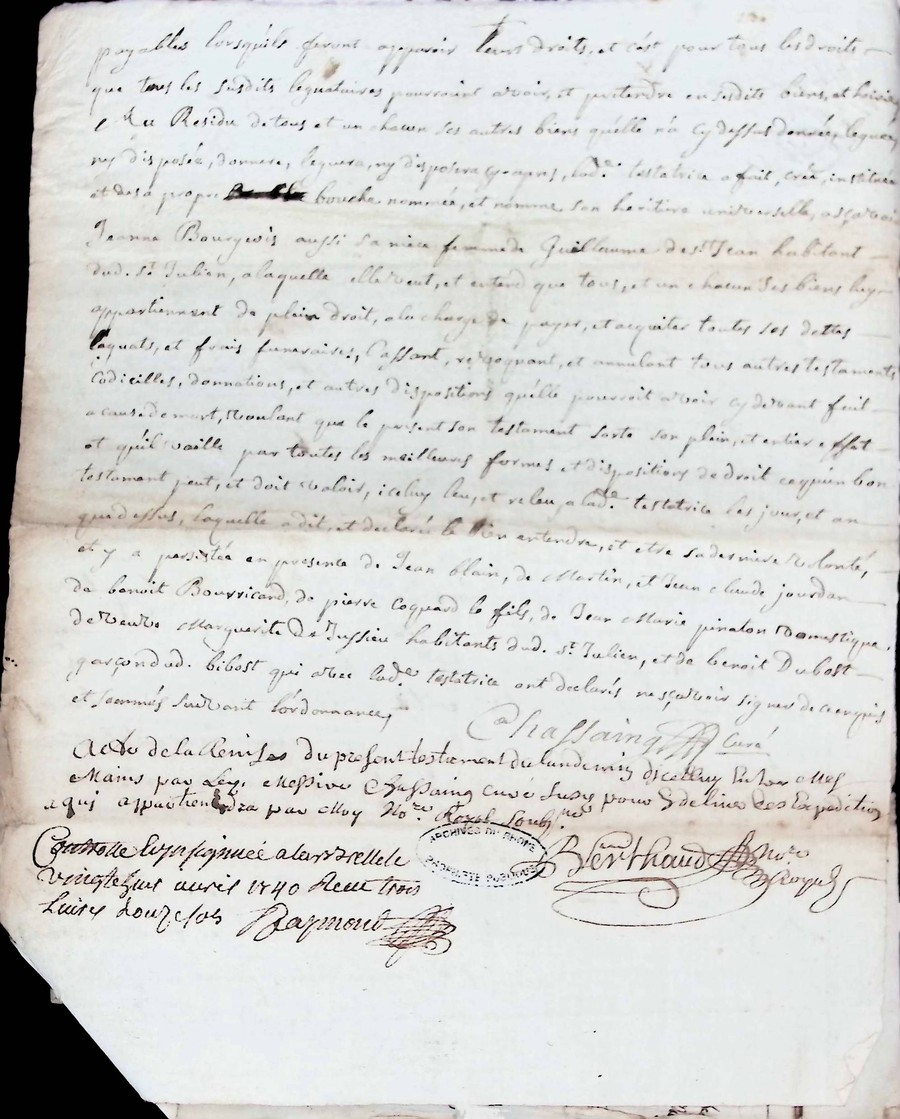 payables lorsquels feront apparoir leurs droits, et c'est pour tous les droits
que tous les susdits leguataires pourroient avoir, et pretendre en sesdits biens, et hoirie
Au Residu de tous et un chacun ses autres biens quelle n'a cy dessus donnée, leguée,
ny disposée, donnera, leguera, ny disposera cy apres, lad.e testatrice a fait, créé, instituée
et de sa propre bouche nommée, et nomme son heritiere universelle, asçavoir
Jeanne Bourgeois aussi sa niece femme de Guillaume de st Jean habitant
dud. st Julien, a laquelle elle veut, et entend que tous, et un chacun ses biens luy
appartiennent de plein droit, a la charge de payer, et acquiter toutes ses dettes
leguats, et frais funeraires, Cassant, revoquant, et annulant tous autres testaments
Codicilles, donnations, et autres dispositions quelle pourroit avoir cy devant fait
a cause de mort, voulant que le present son testament sorte son plein, et entier effet
et qu'il vaille par toutes les meilleures formes et dispositions de droit ce qu'un bon
testament peut, et doit valoir, iceluy leu, et releu, a lad.te testatrice les jour, et an
que dessus, laquelle a dit, et declaré le bien entendre, et etre sa derniere volonté,
et y a persistée en presence de Jean blain, de Martin, et Jean claude jourdan
de benoit Bourricand, de pierre coquard le fils, de Jean Marie pinaton domestique
de veuve Marguerite De Jussieu habitants dud. st Julien, et de benoit Dubost
garçon dud. bibost qui avec lad.e testatrice ont declarés ne sçavoir signer de ce enquis
et sommés suivant l'ordonnance,
Chassaing Curé
Acte de la Remise du present testament du lendemin dicelluy Entre Mes
Mains par Led. Messire Chassaing curé susd. pour En delivrer des Expedition
a qui appartiendra par Moy No.re Royal soub.né
ARCHIVES DU RHÔNE
PROPRIÉTÉ PUBLIQUE
Berthaud No.re
Royal
Controllé Et Insignué a
vingt avril 1740 Receu trois
Livres douze sols Raymond